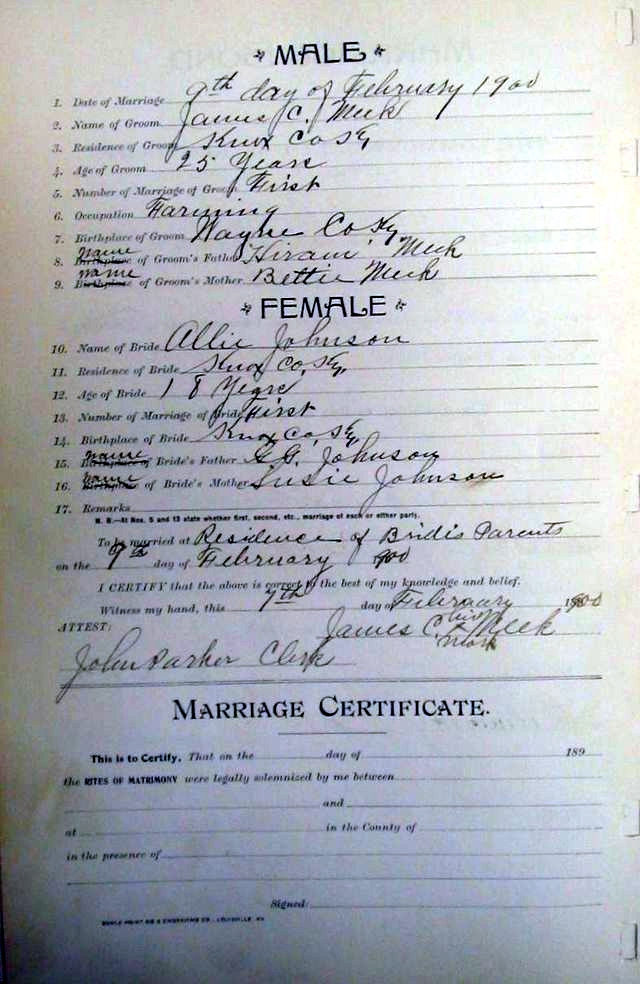 MALE
1. Date of Marriage 9th day of February 1900
2. Name of Groom James C. Meek
3. Residence of Groom Knox Co Ky
4. Age of Groom 25 Years
5. Number of Marriage of Groom First
6. Occupation Farming
7. Birthplace of Groom Wayne Co Ky
name
8. Birthplace of Groom's Father Hiram Meek
name
9. Birthplace of Groom's Mother Bettie Meek
FEMALE
10. Name of Bride Allie Johnson
11. Residence of Bride Knox Co, Ky,
12. Age of Bride 18 Years
13. Number of Marriage of Bride First
14. Birthplace of Bride Knox Co, Ky,
name
15. Birthplace of Bride's Father G. G. Johnson
name
16. Birthplace of Bride's Mother Susie Johnson
17. Remarks
N. B.—At Nos. 5 and 13 state whether first, second, etc., marriage of each or either party.
To be married at Residence of Brid's Parents
on the 9th day of February 900
I CERTIFY that the above is correct to the best of my knowledge and belief.
Witness my hand, this 7th day of February 1900
his
ATTEST: James C. x Meek
mark
John Parker Clerk
MARRIAGE CERTIFICATE.
This is to Certify, That on the day of 189
the RITES OF MATRIMONY were legally solemnized by me between
and
at in the County of
in the presence of
Signed: